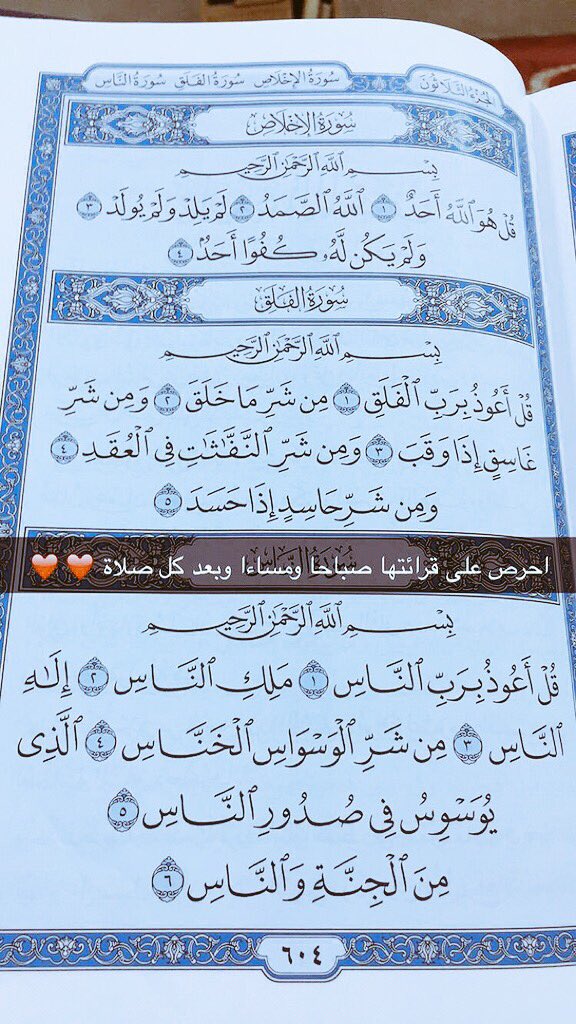 الجزء الثلاثون
سورة الإخلاص سورة الفلق سورة الناس
سُورَةُ الإِخْلَاصِ
بِسْمِ ٱللَّهِ ٱلرَّحْمَٰنِ ٱلرَّحِيمِ
قُلْ هُوَ ٱللَّهُ أَحَدٌ ١ ٱللَّهُ ٱلصَّمَدُ ٢ لَمْ يَلِدْ وَلَمْ يُولَدْ ٣
وَلَمْ يَكُن لَّهُۥ كُفُوًا أَحَدٌۢ ٤
سُورَةُ الفَلَقِ
بِسْمِ ٱللَّهِ ٱلرَّحْمَٰنِ ٱلرَّحِيمِ
قُلْ أَعُوذُ بِرَبِّ ٱلْفَلَقِ ١ مِن شَرِّ مَا خَلَقَ ٢ وَمِن شَرِّ
غَاسِقٍ إِذَا وَقَبَ ٣ وَمِن شَرِّ ٱلنَّفَّٰثَٰتِ فِى ٱلْعُقَدِ ٤
وَمِن شَرِّ حَاسِدٍ إِذَا حَسَدَ ٥
احرص على قرائتها صباحا ومساءا وبعد كل صلاة
بِسْمِ ٱللَّهِ ٱلرَّحْمَٰنِ ٱلرَّحِيمِ
قُلْ أَعُوذُ بِرَبِّ ٱلنَّاسِ ١ مَلِكِ ٱلنَّاسِ ٢ إِلَٰهِ
ٱلنَّاسِ ٣ مِن شَرِّ ٱلْوَسْوَاسِ ٱلْخَنَّاسِ ٤ ٱلَّذِى
يُوَسْوِسُ فِى صُدُورِ ٱلنَّاسِ ٥
مِنَ ٱلْجِنَّةِ وَٱلنَّاسِ ٦
٦٠٤